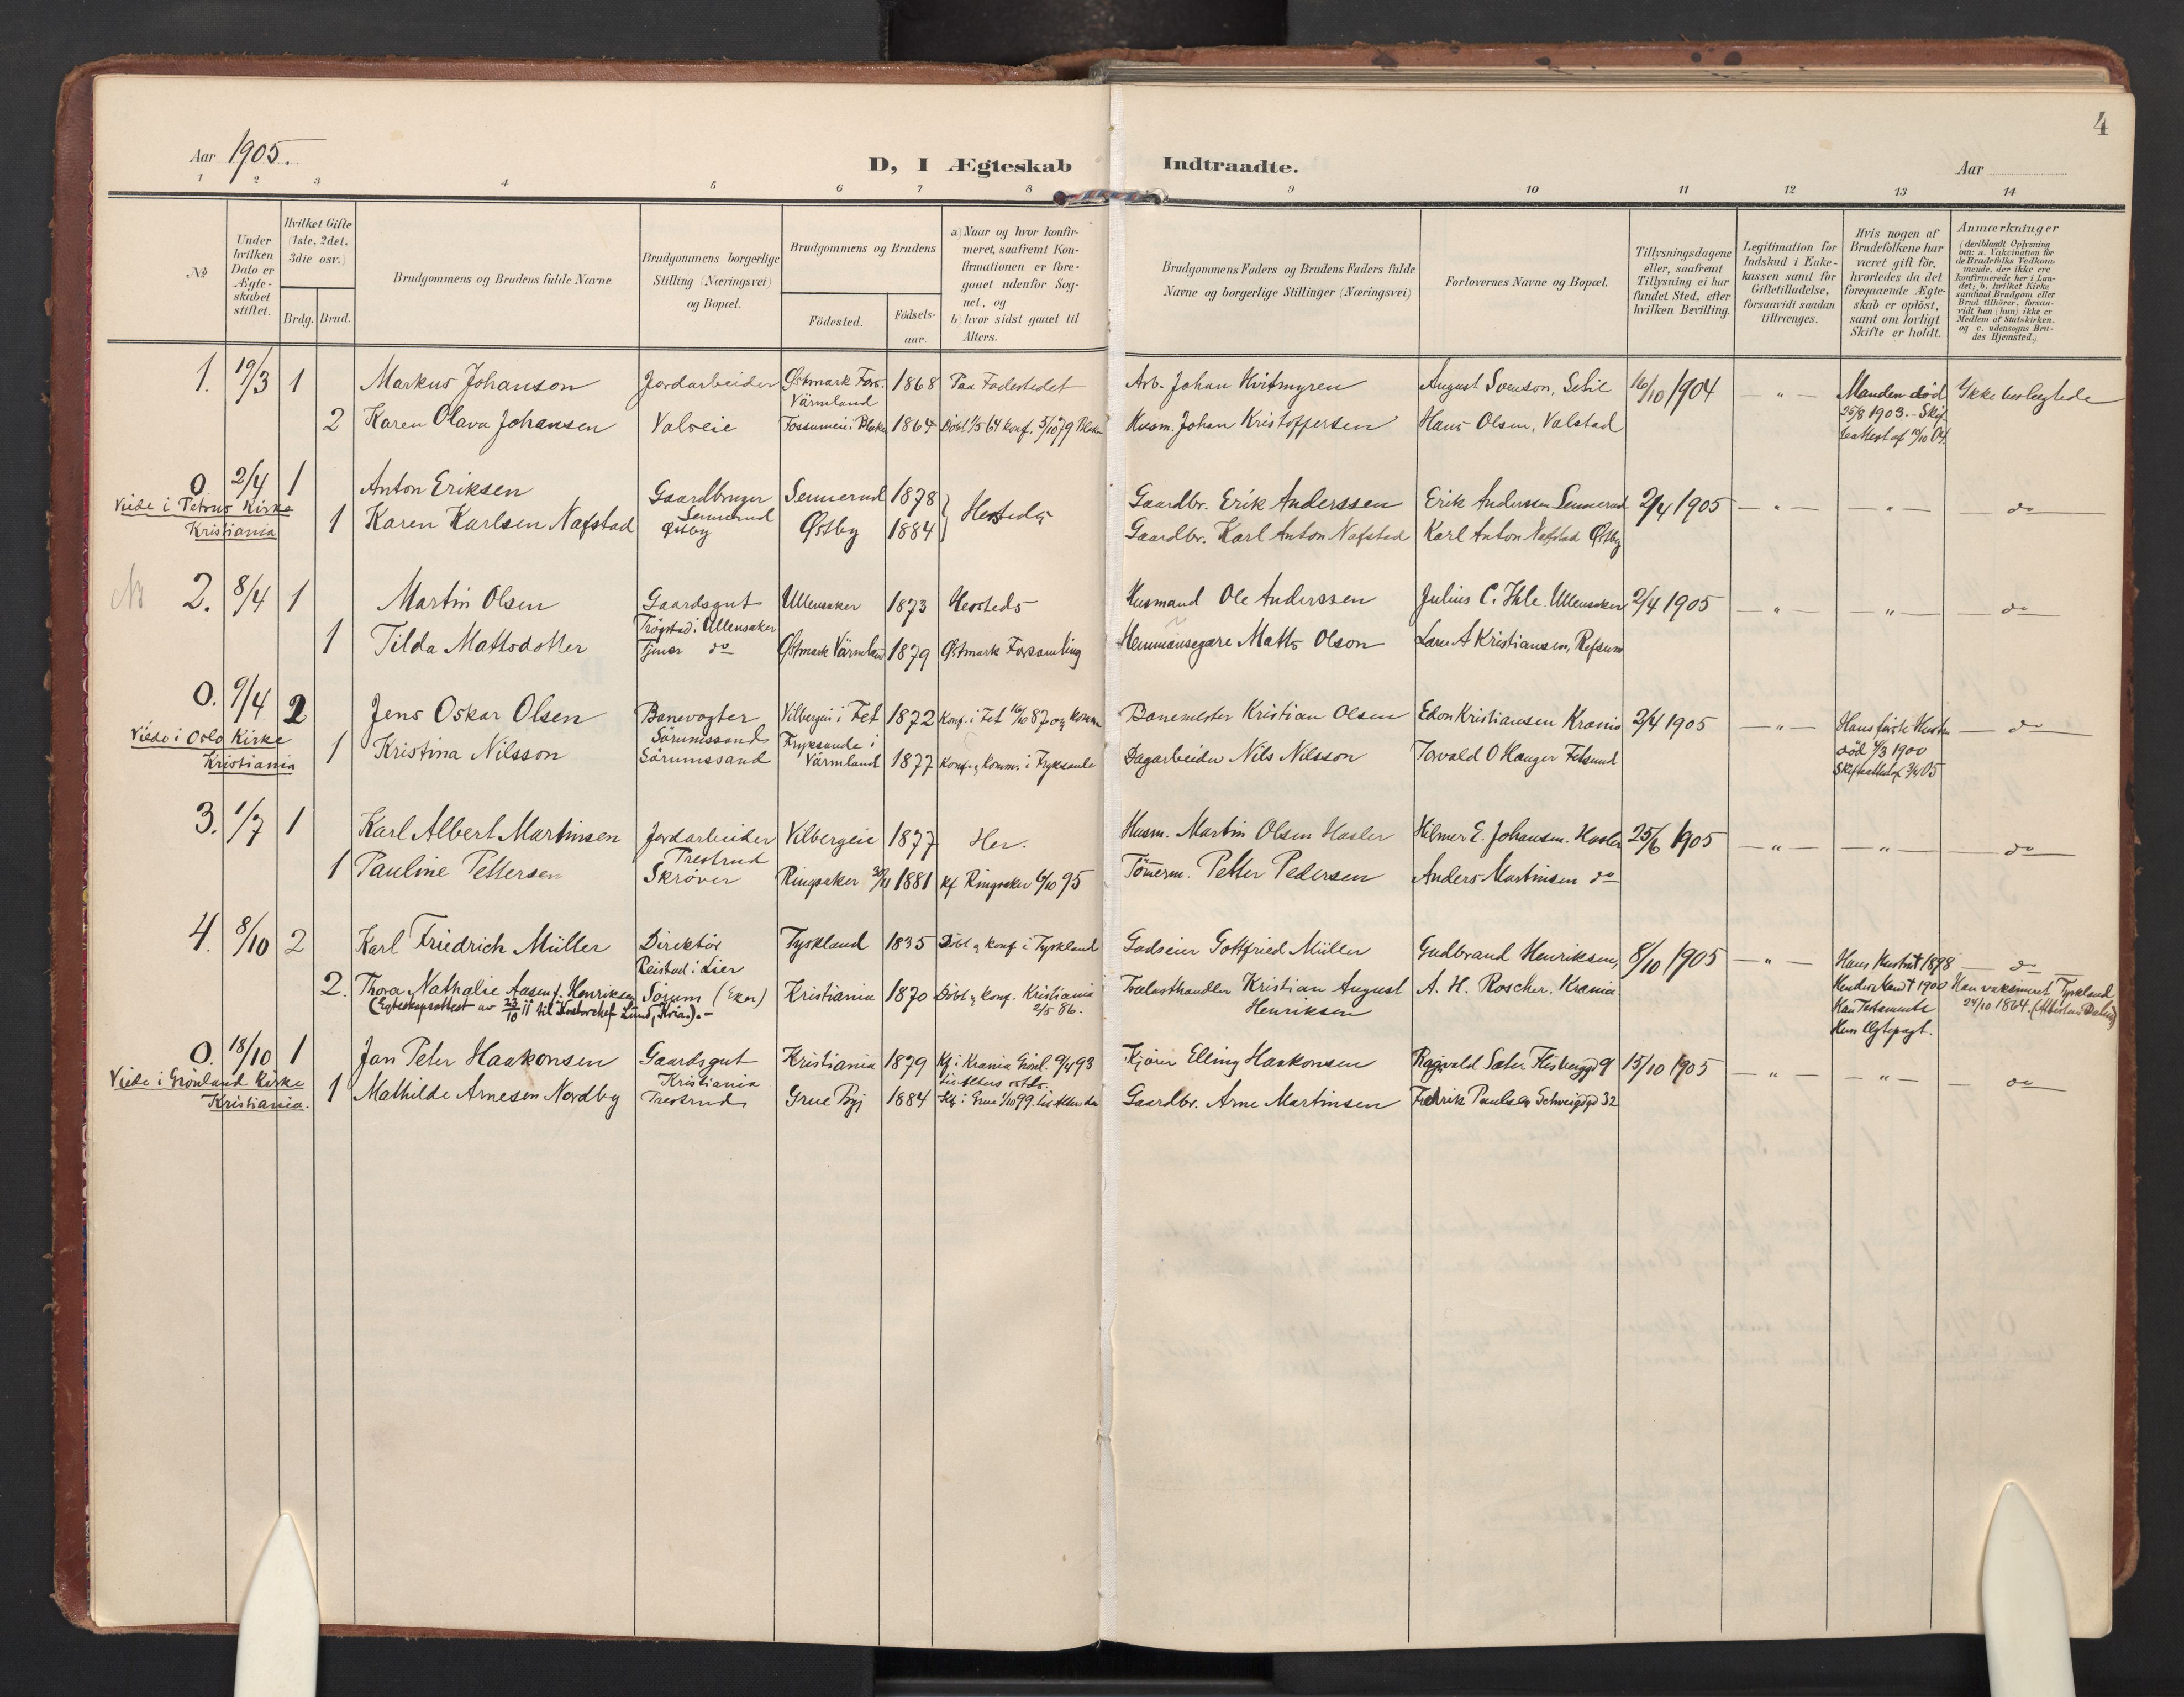 4
Aar 1905.
D, I Ægteskab Indtraadte.
Aar
1 2 3 4 5 6 7 8 9 10 11 12 13 14
No
Under hvilken Dato er Ægteskabet stiftet.
Hvilket Gifte (1ste, 2det, 3die osv.)
Brdg. Brud.
Brudgommens og Brudens fulde Navne
Brudgommens borgerlige Stilling (Næringsvei) og Bopæl.
Brudgommens og Brudens
Födested.
Födselsaar.
a) Naar og hvor konfirmeret, saafremt Konfirmationen er foregaaet udenfor Sognet, og
b) hvor sidst gaaet til Alters.
Brudgommens Faders og Brudens Faders fulde Navne og borgerlige Stillinger (Næringsvei)
Forlovernes Navne og Bopæl.
Tillysningsdagene eller, saafremt Tillysning ei har fundet Sted, efter hvilken Bevilling.
Legitimation for Indskud i Enkekassen samt for Giftetilladelse, forsaavidt saadan tiltrænges.
Hvis nogen af Brudefolkene har været gift för, hvorledes da det foregaaende Ægteskab er oplöst, samt om lovligt Skifte er holdt.
Anmærkninger
(deriblandt Oplysning om: a. Vakcination for de Brudefolks Vedkommende, der ikke ere konfirmerede her i Landet; b. hvilket Kirkesamfund Brudgom eller Brud tilhörer, forsaavidt han (hun) ikke er Medlem af Statskirken, og c. udensogns Brudes Hjemsted.)
1. 19/3 1 Markus Johanson Jordarbeider Østmark Fors. Värmland 1868 Paa Fødestedet Arb. Johan Kvitmyren August Svenson, 16/10 1904 — " — Manden död 25/8 1903. - Ikke beslegtede
2 Karen Olava Johansen Valseie Fossumeie i Blaker 1864 Döbt 1/5 64 konf. 5/10 79 Blaker Husm. Johan Kristoffersen Hans Olsen, Valstad
0 2/4 1 Anton Eriksen Gaardbruger Sennerud Sennerud 1878 Hersteds Gaardbr. Erik Anderssen Erik Anderssen Sennerud 2/4 1905 — " — — " — do
Viede i Petrus Kirke Kristiania
1 Karen Karlsen Nafstad Østby Østby 1884 Gaardbr. Karl Anton Nafstad Karl Anton Nafstad Østby
2. 8/4 1 Martin Olsen Gaardsgut Trögstad i Ullensaker Ullensaker 1873 Hersteds Husmand Ole Anderssen Julius C. Ihle. Ullensaker 2/4 1905 — " — — " — do
1 Tilda Mattsdotter Tjener do Østmark Värmland 1879 Østmark Forsamling Hemmansegare Matts Olson A Kristiansen, Refsum
0. 9/4 2 Jens Oskar Olsen Banevogter Sörumssand Vilbergeie i Fet 1872 Konf. i Fet 16/10 87 og komm Banemester Kristian Olsen Edon Kristiansen Krania 2/4 1905 — " — Hans første Hustru död 4/3 1900 do
Viede i Oslo Kirke Kristiania
1 Kristina Nilsson Sörumssand Fryksande i Värmland 1877 Konf. og komm. i Fryksande Dagarbeider Nils Nilsson Torvald O Hauger Fetsund
3. 1/7 1 Karl Albert Martinsen Jordarbeider Prestrud Vilbergeie 1877 Her. Husm. Martin Olsen Hasler Hilmer E. Johansen. Hasler 25/6 1905 — " — — " — do
1 Pauline Pettersen Skröver Ringsaker 1881 kf Ringsaker 6/10 95 Tömerm. Petter Pedersen Anders Martinsen do
4. 8/10 2 Karl Friedrich Müller Direktör Reistad i Lier Tyskland 1835 Döbt og konf. i Tyskland Godseier Gottfried Müller Gudbrand Henriksen, 8/10 1905 — " — Hans Hustru † 1898 do
2. Thora Nathalie Aasen f. Henriksen Sörum (Eker) Kristiania 1870 Döbt og konf. Kristiania 2/5 86. Kristian August Henriksen A. H. Roscher, Krania Hendes Mand † 1900 Han vaksineret Tyskland 24/10 1864.
Han Testamente
Hun Ægtepagt.
0. 18/10 1 Jan Peter Haakonsen Gaardsgut Kristiania Kristiania 1879 Kf i Krania Grönl. 9/4 93 Kjörer Elling Haakonsen Ragvald Sæter 15/10 1905 — " — — " — do
Viede i Grönland Kirke Kristiania.
1 Mathilde Arnesen Nordby Prestrud Grue 1884 Kf i Grue 1/10 99. Gaardbr. Arne Martinsen Fredrik Paulsen Schweigsgd 32